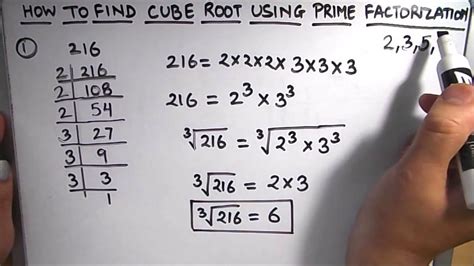 HOW TO FIND CUBE ROOT USING PRIME FACTORIZATION
① 216
2 | 216
2 | 108
2 | 54
3 | 27
3 | 9
3 | 3
1
216 = 2×2×2×3×3×3
216 = 2³ × 3³
∛216 = ∛2³ × 3³
∛216 = 2 × 3
∛216 = 6
2,3,5,